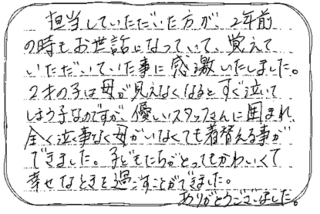 担当していただいた方が、2年前
の時もお世話になっていて、覚えて
いただいていた事に感激いたしました。
2才の子は母が見えなくなるとすぐ泣いて
しまう子なのですが、優しいスタッフさんに囲まれ
全く泣く事なく母がいなくても着替える事が
できました。子どもたちがとってもかわいくて
幸せなときを過ごすことができました。
ありがとうございました。